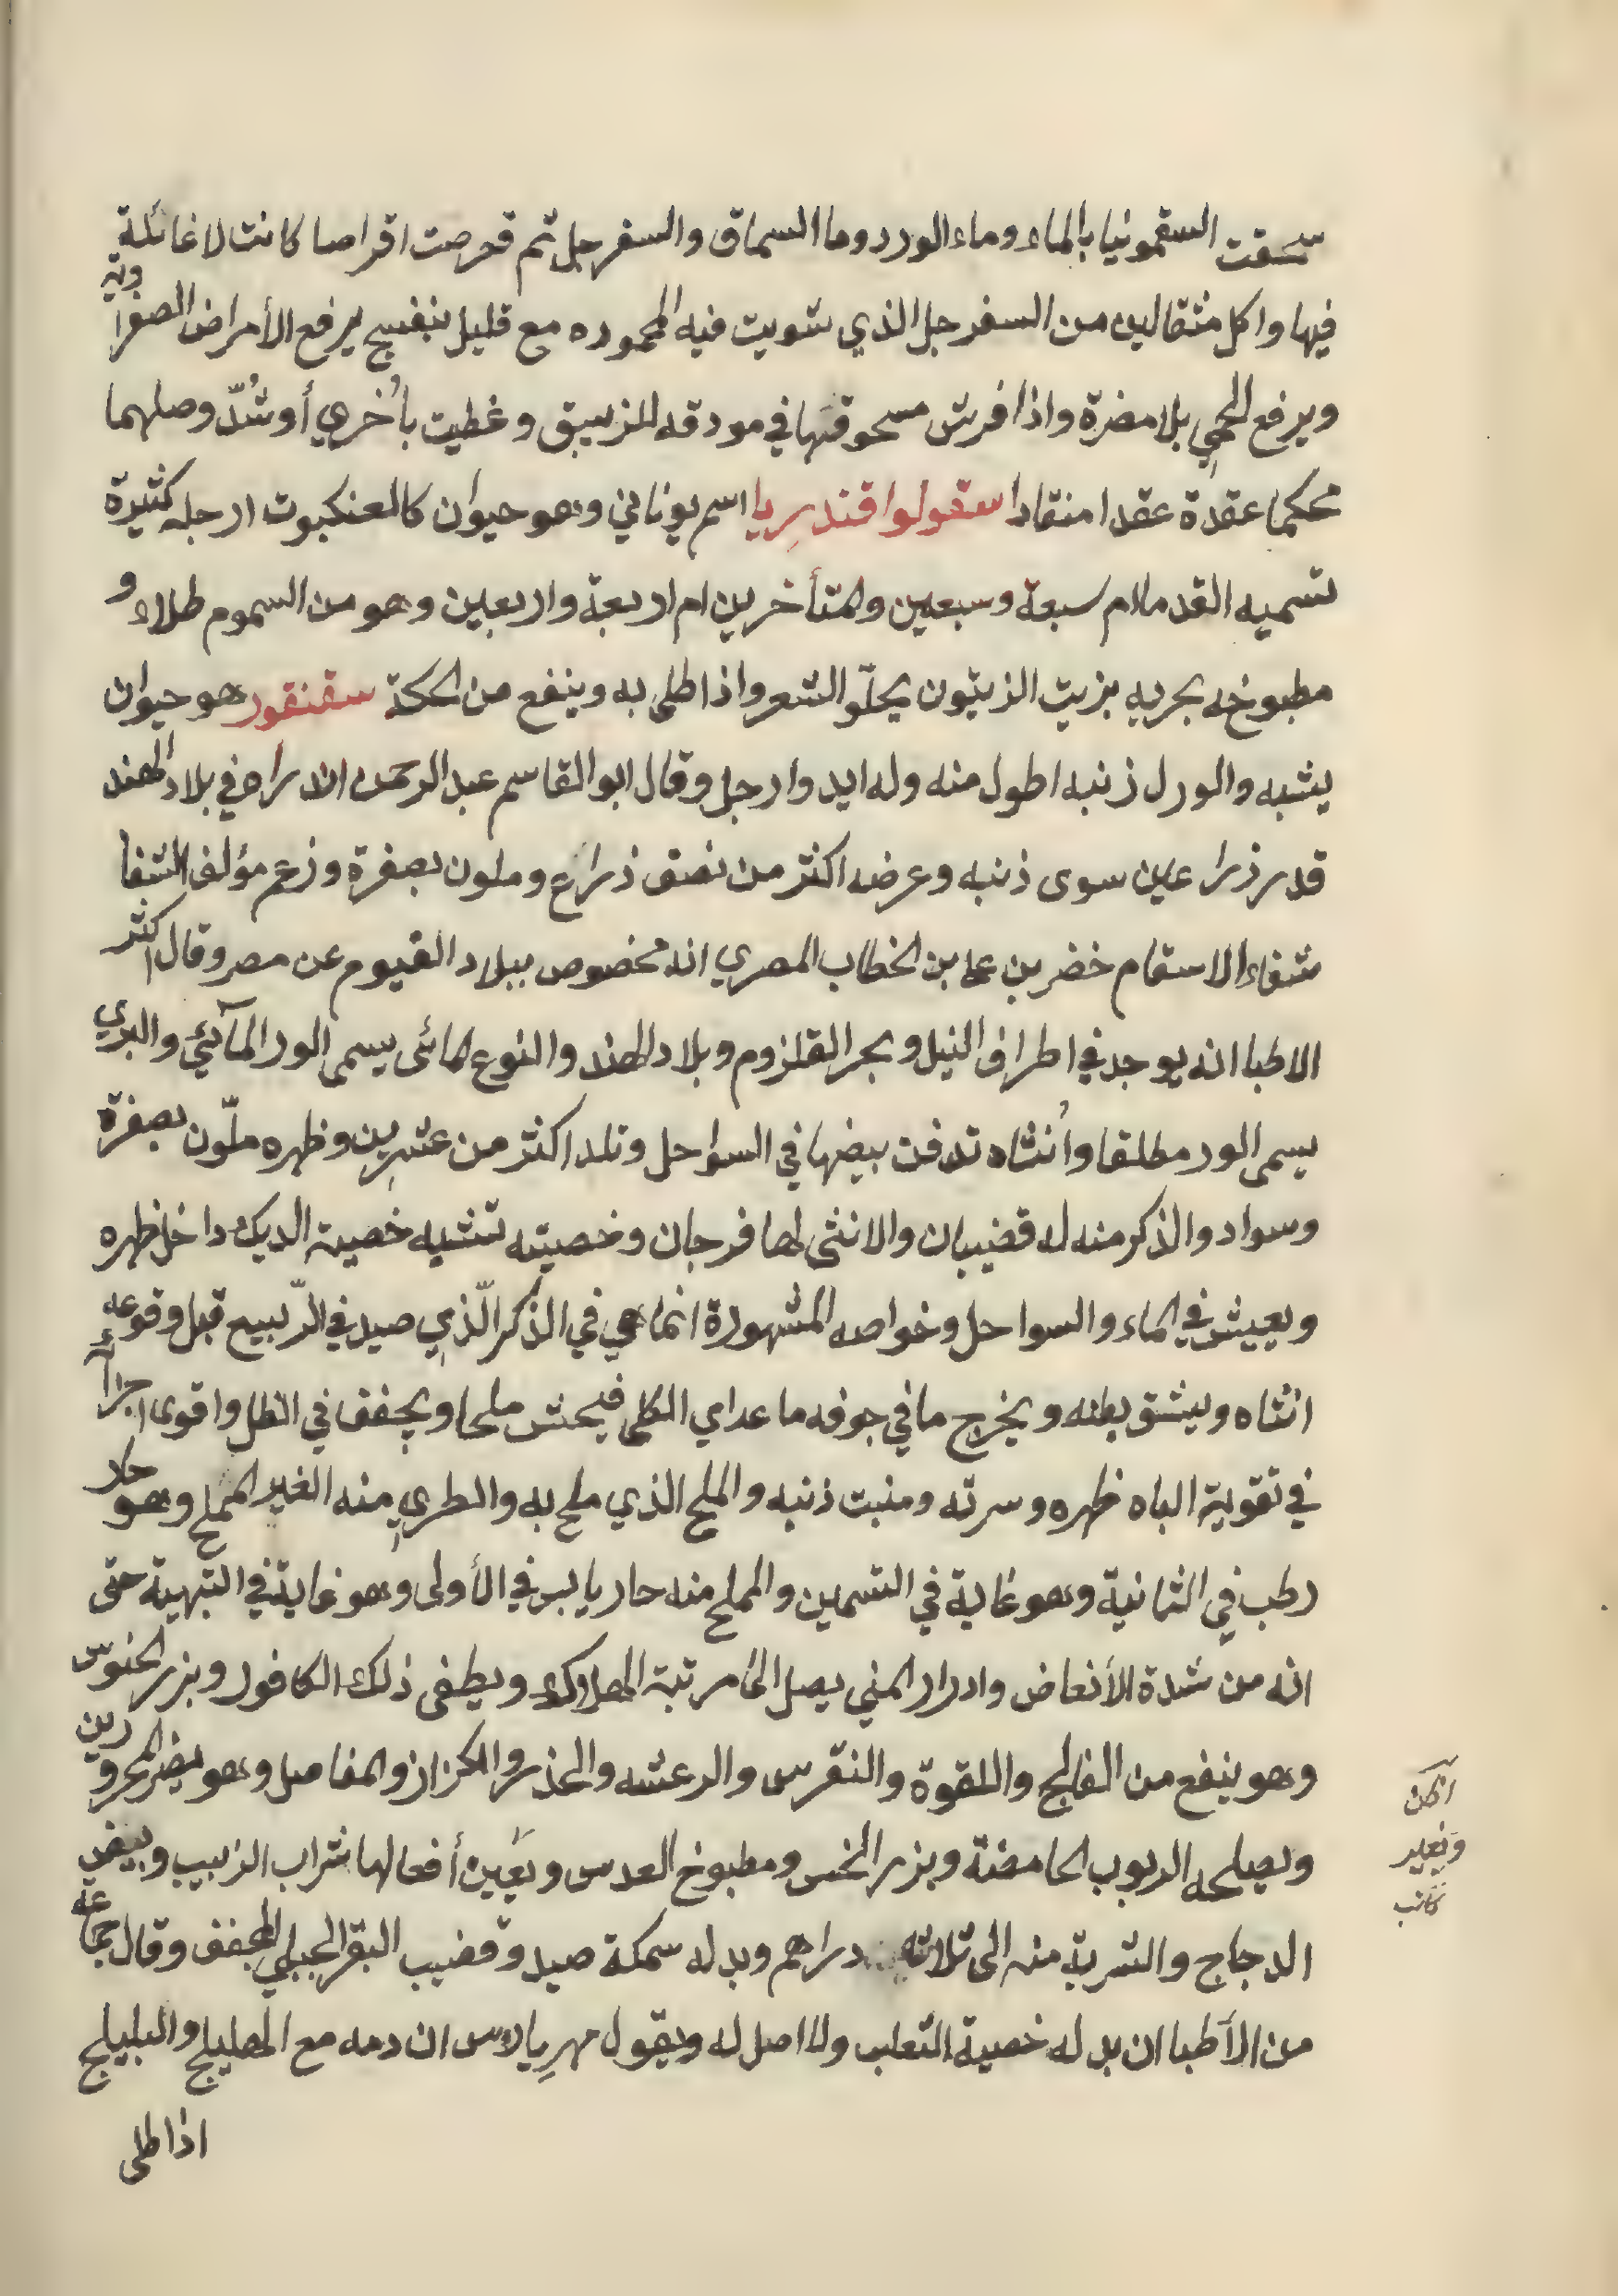 سحقت السقمونيا بالماء وماء الورد وما السماق والسفرجل ثم قرصت اقراصا كانت لا غائلة
فيها واكل مثقالين من السفرجل الذي شويت فيه المحموده مع قليل بنفسج يرفع الأمراض الصفراوية
ويرفع الحمي بلا مضرة واذا فرش مسحوقها في مودقه للزيبق وغطيت بأُخري أو شُدّ وصلهما
محكما عقدة عقدا منقادا سقولوا قندريا اسم يوناني وهو حيوان كالعنكبوت ارجله كثيرة
تسميه القدما ام سبعة وسبعين والمتأخرين ام اربعة واربعين وهو من السموم طلاء و
مطبوخه بحريه بزيت الزيتون يحلّو الشعر واذا طلى به وينفع من الحكة سقنقور هو حيوان
يشبه والورل ذنبه اطول منه وله ايد وارجل وقال ابو القاسم عبد الرحمن انه راه في بلاد الهند
قدر ذراعين سوى ذنبه وعرضه اكثر من نصف ذراع وملون بصفرة وزعم مؤلف الشفا
شفاء الاسقام خضر بن علي بن الخطاب المصري انه مخصوص ببلاد الفيوم عن مصر وقال اكثر
الاطبا انه يوجد في اطراف النيل وبحر القلزوم وبلاد الهند والنوع المائى يسمى الور المآئي والبري
يسمى الور مطلقا وأُنثاه تدفن بيضها في السواحل وتلد اكثر من عشرين وظهره ملّون بصفرة
وسواد والذكر منه له قضيبان والانثى لها فرجان وخصيته تشبه خصية الديك داخل ظهره
ويعيش في الماء والسواحل وخواصه المشهورة انما هي في الذكر الّذي صيد في الرّبيع قبل وقوعه
انثاه ويشق بطنه ويخرج ما في جوفه ما عداي الكلى فيحش ملحا ويجفف في الظل واقوى اجزآء
في تقوية الباه ظهره وسرته ومنبت ذنبه والملح الذي ملح به والطري منه الغير المملح وهو حار
رطب في الثانية وهو غاية في التسمين والمملح منه حار يابس في الأولى وهو غاية في التهية حتى
انه من شدة الأنعاض وادرار المني يصل الى مرتبة الهلاك ويطفى ذلك الكافور وبزر الخس
وهو ينفع من الفالج واللقوة والنقرس والرعشه والخذر والكزاز والمفاصل وهو يضر المحرورين
ويصلحه الربوب الحامضة وبزر الخس ومطبوخ العدس ويَعين أفعالها شراب الزبيب وبيض
الدجاج والشربة منه الى ثلاثه دراهم وبدله سمكة صيد وقضيب البقر الجبلي المجفف وقال جماعة
من الأطبا ان بدله خصية الثعلب ولا اصل له ويقول مهريارس ان دمه مع الهليلج والبليلج
اذا طلى